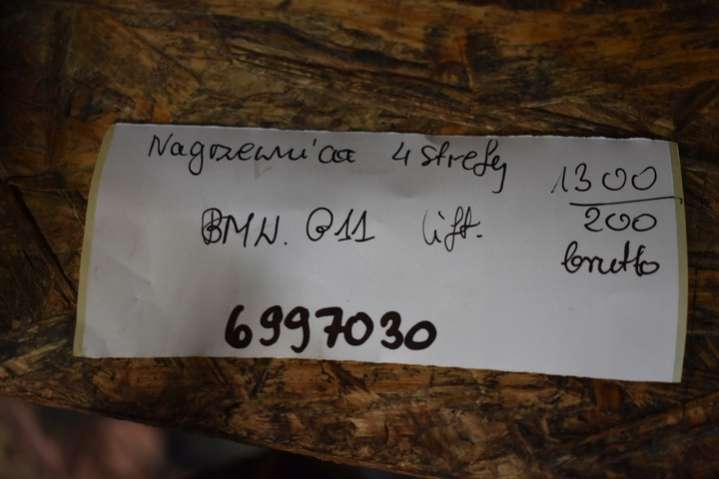 Nagrzewnica 4 strefy
1300
200
brutto
BMW. G11 lift.
6997030